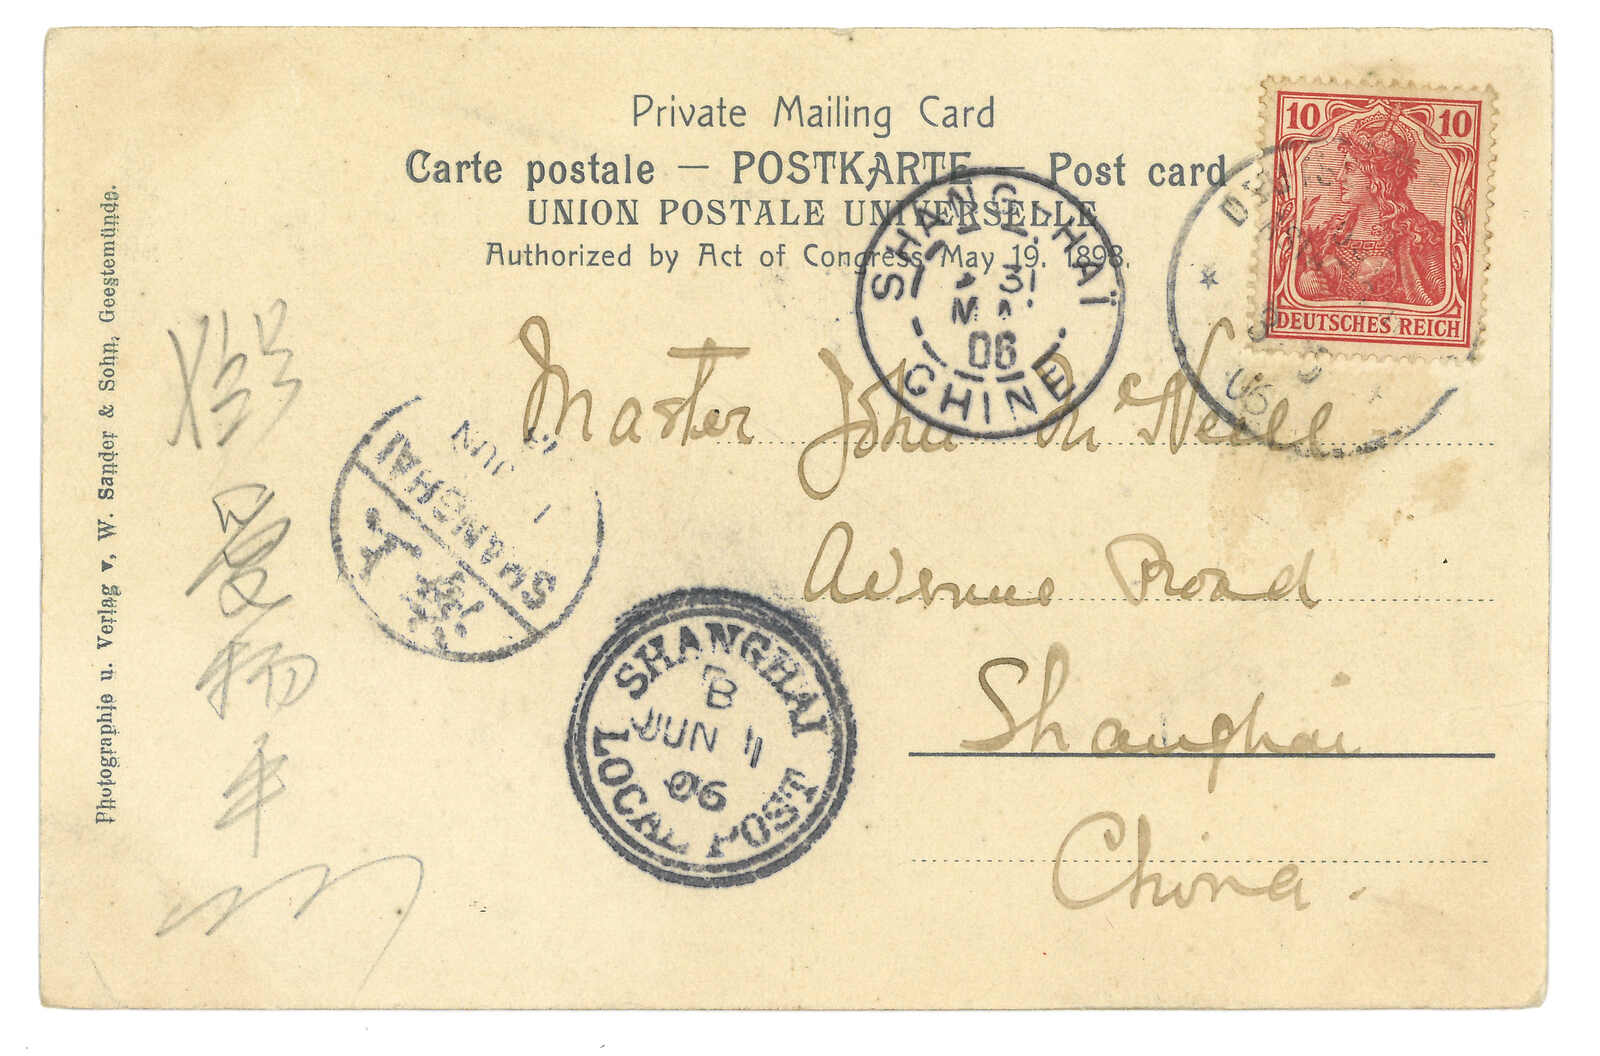 Private Mailing Card
Carte postale — POSTKARTE — Post card
UNION POSTALE UNIVERSELLE
Authorized by Act of Congress May 19. 1898.
10 10
DEUTSCHES REICH
SHANG-HAÏ
31
06
CHINE
06
Master John McNeill
Avenue Road
Shanghai
China.
1 JUN
SHANGHAI
SHANGHAI
B
JUN 1
06
LOCAL POST
Photographie u. Verlag v. W. Sander & Sohn, Geestemünde.